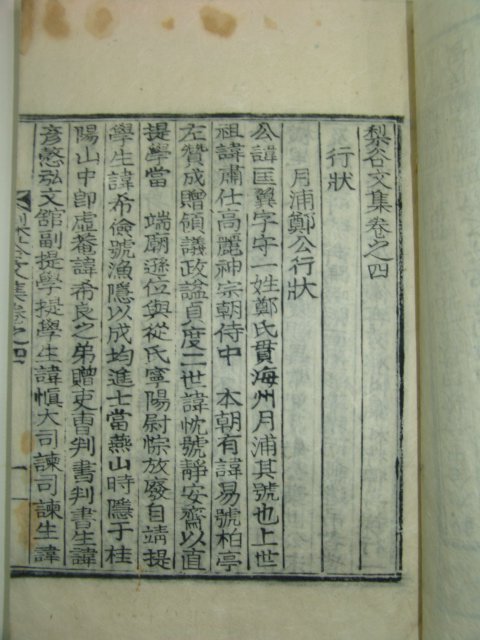 梨谷文集卷之四
行狀
月浦鄭公行狀
公諱匡翼字守一姓鄭氏貫海州月浦其號也上世
祖諱肅仕高麗神宗朝侍中 本朝有諱易號柏亭
左贊成贈領議政諡貞度二世諱忱號靜安齋以直
提學當 端廟遜位與從氏寧陽尉悰放廢自靖提
學生諱希儉號漁隱以成均進士當燕山時隱于桂
陽山中卽虛菴諱希良之弟贈吏曹判書判書生諱
彦慤弘文舘副提學提學生諱愼大司諫司諫生諱
梨谷文集卷之四 一